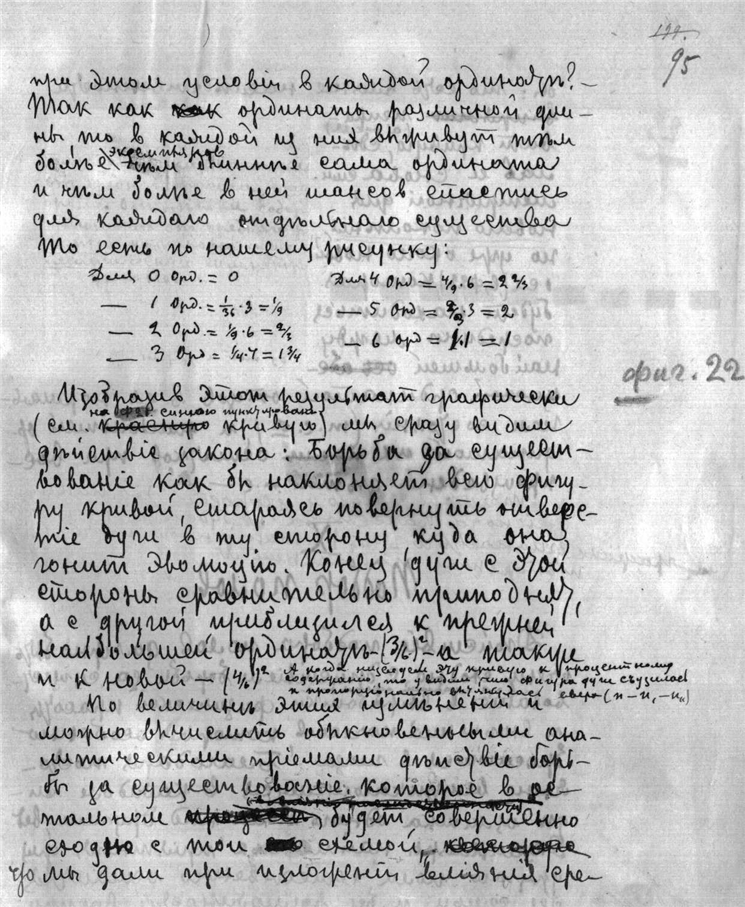 199.
95
при этом условіи в каждой ординатѣ? –
Так как ординаты различной дли-
ны то в каждой из них выживут тѣм
экземпляров
болѣе чѣм длиннѣе сама ордината
и чѣм болѣе в ней шансов спастись
для каждаго отдѣльнаго существа
То есть по нашему рисунку:
Для 0 Орд. = 0
— 1 Орд. = 1/36 · 3 = 1/9
— 2 Орд. = 1/9 · 6 = 2/3
— 3 Орд = 1/4 · 7 = 1 3/4
Для 4 Орд = 4/9 · 6 = 2 2/3
— 5 Орд = · 3 = 2
— 6 орд = 1·1 = 1
фиг. 22
Изобразив этот результат графически
на синюю пунктирован.
(см. красную кривую) мы сразу видим
дѣйствіе закона: Борьба за сущест-
вованіе как бы наклоняет всю фигу-
ру кривой, стараясь повернуть отверс-
тіе дуги в ту сторону куда она
гонит эволюцію. Конец дуги с этой
стороны сравнительно приподнят,
а с другой приблизился к прежней
наибольшей ординатѣ – (3/6)² – а также
и к новой – (4/6)²
А когда низведем эту кривую к процентному
содержанію то увидим, что фигура дуги съузилась
и пропорціонально вытянулась вверх
По величинѣ этих измѣненій и
можно вычислить обыкновенными ана-
литическими пріемами дѣйствіе борь-
бы за существованіе, которое в ос-
тальном будет совершенно
сходно с той схемой,
что мы дали при изложеніи вліянія сре-